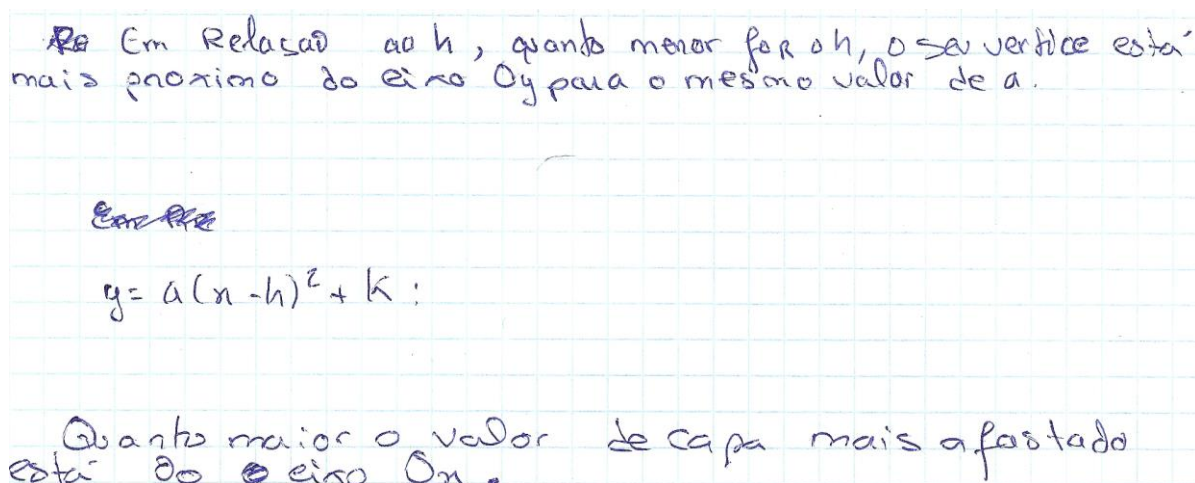 Em Relasão ao h, quanto menor foR o h, o seu vertice está
mais proximo do eixo Oy para o mesmo valor de a.
y = a(x-h)² + k:
Quanto maior o valor de capa mais afastado
está do eixo Ox.